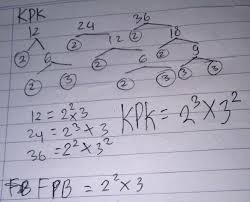 KPK
12 24 36
2 6 2 12 2 18
2 3 2 6 2 9
2 3 3 3
12 = 2² × 3
24 = 2³ × 3
36 = 2² × 3²
KPK = 2³ × 3²
FPB = 2² × 3